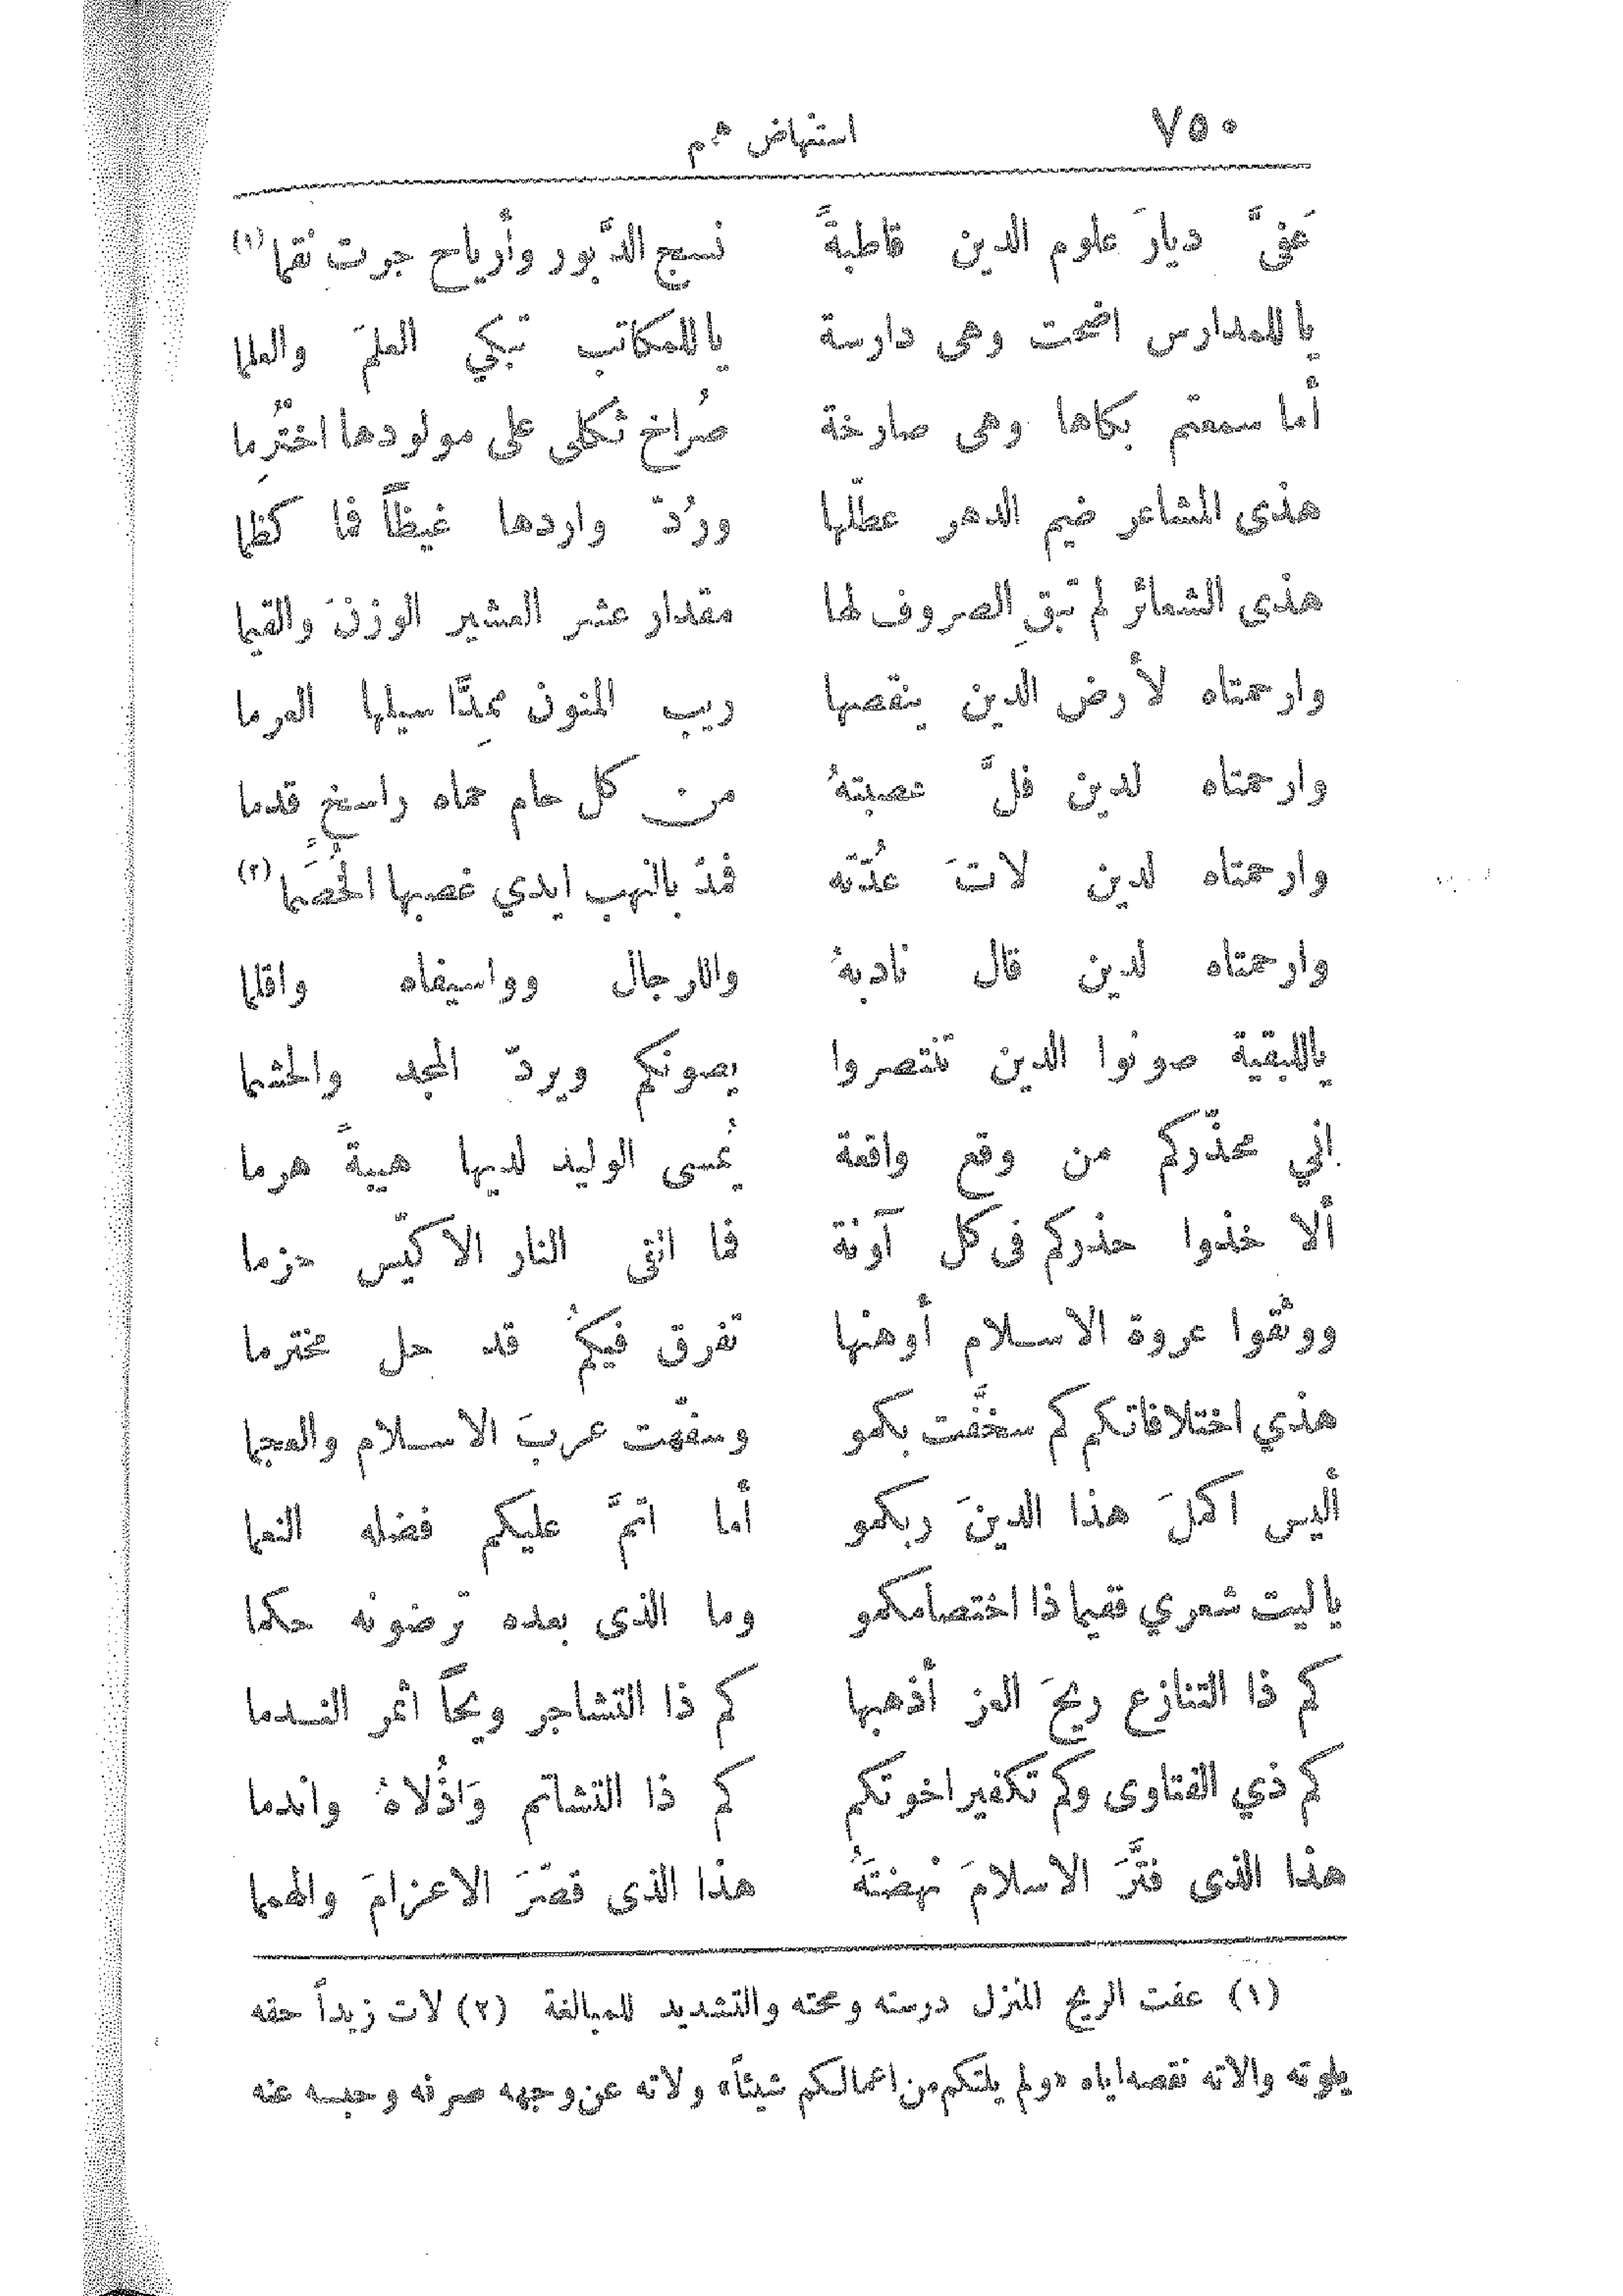 ٧٥٠ استنهاض همم
عَفىَّ ديارَ علوم الدين قاطبةً نسيج الدَّبور وأرياح جرت نقما (١)
يا للمدارس اضحت وهى دارسة يا للمكاتب تبكي العلمَ والعلما
أما سمعتم بكاها وهى صارخة صُراخ ثكلى على مولودها اختُرِما
هذى المشاعر ضيم الدهر عطّلها ورُدّ واردها غيظاً فما كظما
هذى الشعائر لم تبقِ الصروف لها مقدار عشر العشير الوزنَ والقيما
وارحمتاه لأرض الدين ينقصها ريب المنون مُمِدًّا سيلها العرما
وارحمتاه لدين فلَّ عصبتهُ من كل حام حماه راسخٍ قدما
وارحمتاه لدين لاتَ عُدّته فمدّ بالنهب ايدي غصبها الخُصَما (٢)
وارحمتاه لدين قال نادبهُ واللرجال وواسيفاه واقلما
ياللبقية صونوا الدين تنتصروا يصونكم ويردّ المجد والحشما
اني محذّركم من وقع واقعة يُمسى الوليد لديها هيبةً هرما
ألا خذوا حذركم فى كل آونة فما اتقى النار الا كيّس حزما
ووثقوا عروة الاسلام أوهنها تفرق فيكمُ قد حل مخترما
هذي اختلافاتكم كم سخَّفت بكمو وسفّهت عربَ الاسلام والعجما
أليس اكملَ هذا الدينَ ربكمو أما اتمَّ عليكم فضله النعما
يا ليت شعري ففيما ذا اختصامكمو وما الذى بعده ترضونه حكما
كم ذا التنازع ريحَ العز أذهبها كم ذا التشاجر ويحاً اثمر الندما
كم ذي الفتاوى وكم تكفير اخوتكم كم ذا التشاتم وَاذُلاهُ واندما
هذا الذى فتَّرَ الاسلامَ نهضتَهُ هذا الذى قصّرَ الاعزامَ والهمما
(١) عفت الريح المنزل درسته ومحته والتشديد للمبالغة (٢) لات زيداً حقه
يلوته والاته نقصه اياه «ولم يلتكم من اعمالكم شيئاً» ولاته عن وجهه صرفه وحبسه عنه